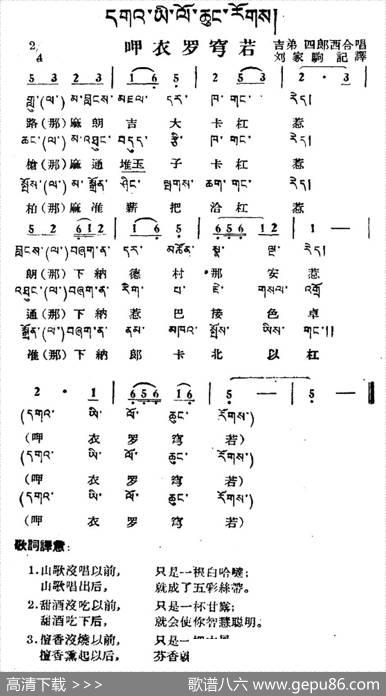 དགའ་ཡི་ལོ་ཆུང་རོགས།
呷衣罗穹若
2/4
吉弟 四郎西合唱
刘家驹記譯
5 3 2 3 | 1 6 5 | 2 5 3 | 2 · 3 |
གླུ་(ལ་) མ་བླངས་མཇལ་དར་ཁ་གང་རེད།
路(那)麻朗吉大卡杠惹
ཆང་(ལ་) མ་འཐུང་བདུད་རྩི་ཁ་གང་རེད།
槍(那)麻通堆玉子卡杠惹
སྤོས་(ལ་) མ་སྒྲོན་ཤིང་ཕག་གང་རེད།
柏(那)麻准新把洽杠惹
5 2 6 1 2 | 1 6 5 | 6 5 6 1 2 | 1 — |
བླངས་(ལ་)བཞག་ན་དར་མཚོན་སྣ་ལྔ་རེད།
朗(那)下納德村那安惹
འཐུང་(ལ་)བཞག་ན་རིག་པ་ཇེ་གསལ་འགྲོ
通(那)下納惹巴接色卓
སྒྲོན་(ལ་)བཞག་ན་ནམ་མཁའ་སྤོས་ཡིས་གང་།།
准(那)下納郎卡北以杠
2 · 1 | 6 5 6 1 6 | 5 — | 5 — ‖
(དགའ་ཡི་ལོ་ཆུང་རོགས་)
(呷衣罗穹若)
(དགའ་ཡི་ལོ་ཆུང་རོགས་)
(呷衣罗穹若)
(དགའ་ཡི་ལོ་ཆུང་རོགས་)
(呷衣罗穹若)
歌詞譯意:
1.山歌沒唱以前, 只是一根白哈噠;
山歌唱出后, 就成了五彩絲帶。
2.甜酒沒吃以前, 只是一杯甘露;
甜酒吃下后, 就会使你智慧聪明。
3.檀香沒燒以前, 只是一
檀香熏起以后, 芬香
高清下载 >>> 歌谱八六 www.gepu86.com